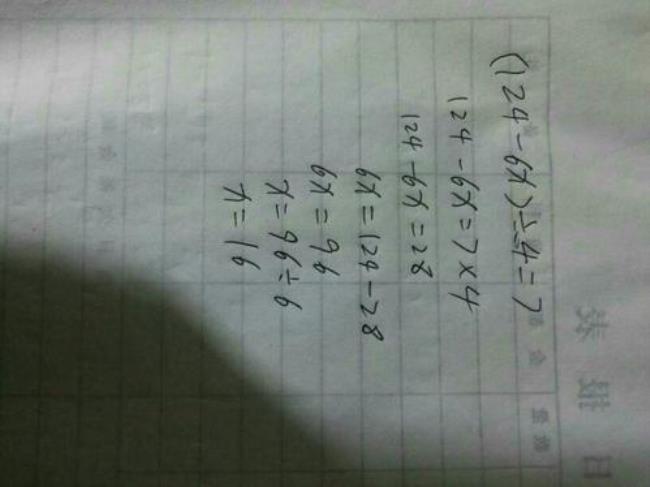 (124-6x)÷4=7
124-6x=7×4
124-6x=28
6x=124-28
6x=96
x=96÷6
x=16